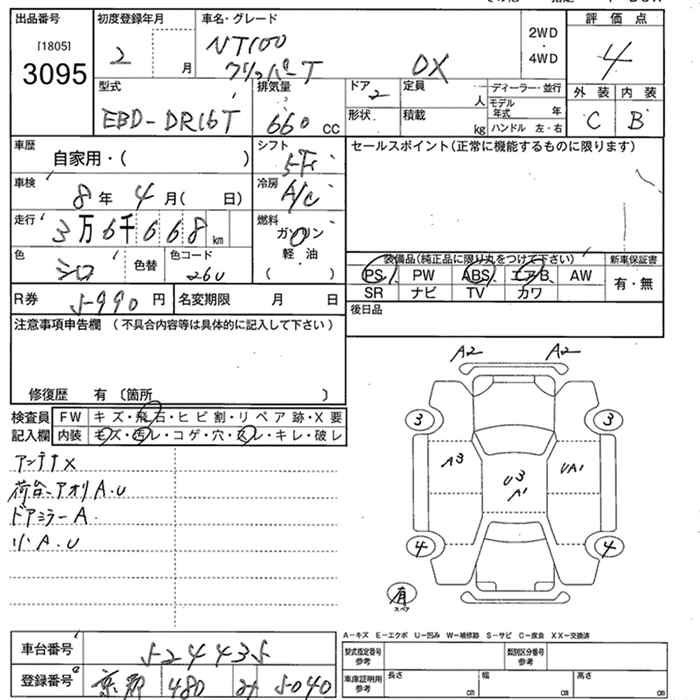 出品番号
[1805]
3095
初度登録年月
2 月
車名・グレード
NT100
クリッパーT DX
2WD
・
4WD
評価点
4
型式
EBD-DR16T
排気量
660 cc
ドア 2
形状
定員 人
積載 kg
ディーラー・並行
モデル年式 年
ハンドル 左・右
外装 内装
C B
車歴
自家用・( )
シフト
5F
セールスポイント(正常に機能するものに限ります)
車検
8年 4月( 日)
冷房
A/C
走行
3万6千668km
燃料
ガソリン
軽・油
( )
色
シロ
色替
色コード
26U
装備品(純正品に限り丸をつけて下さい)
新車保証書
PS PW ABS エアB AW
有・無
SR ナビ TV カワ
R券 5990円
名変期限 月 日
後日品
注意事項申告欄 (不具合内容等は具体的に記入して下さい)
修復歴 有〔箇所 〕
検査員
記入欄
FW キズ・飛石・ヒビ割・リペア跡・X要
内装 キズ・汚レ・コゲ・穴・スレ・キレ・破レ
アンテナX
荷台アオリA.U
ドアミラーA.
小A.U
A2 A2
3 3
A3
U3
A1
UA1
4 4
有
スペア
A-キズ E-エクボ U-凹み W-補修跡 S-サビ C-腐食 XX-交換済
車台番号
524435
登録番号
京都 480 5040
型式指定番号
参考
類別区分番号
参考
車庫証明用
参考
長さ cm
幅 cm
高さ cm